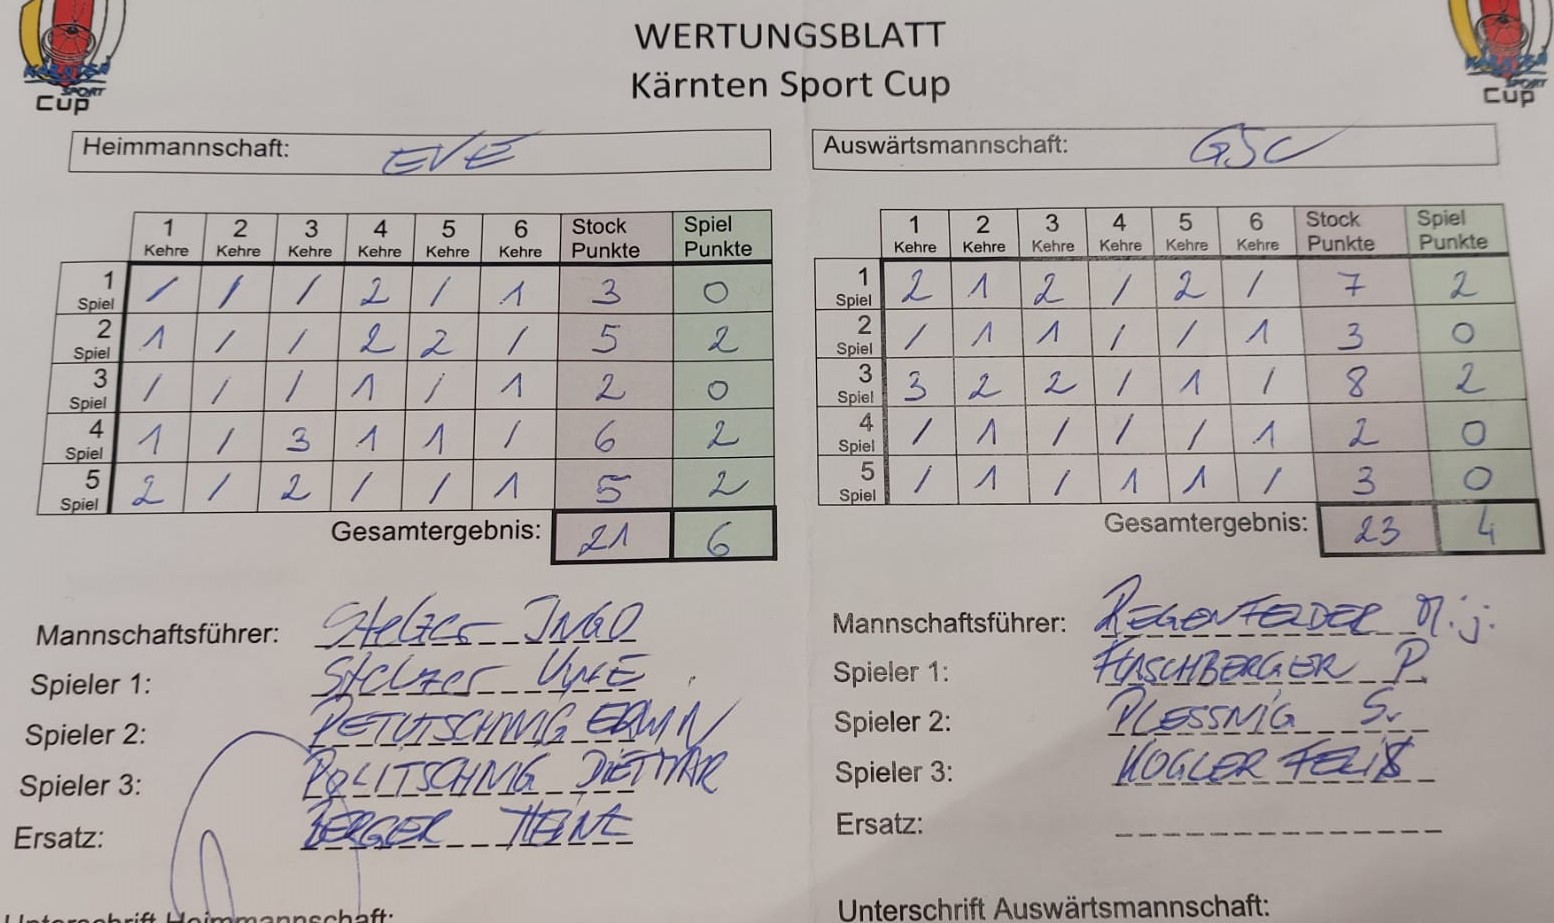 WERTUNGSBLATT
Kärnten Sport Cup
KÄRNTEN SPORT Cup
KÄRNTEN SPORT Cup
Heimmannschaft: EVE
Auswärtsmannschaft: GSC
1 Kehre 2 Kehre 3 Kehre 4 Kehre 5 Kehre 6 Kehre Stock Punkte Spiel Punkte
1 Spiel / / / 2 / 1 3 0
2 Spiel 1 / / 2 2 / 5 2
3 Spiel / / / 1 / 1 2 0
4 Spiel 1 / 3 1 1 / 6 2
5 Spiel 2 / 2 / / 1 5 2
Gesamtergebnis: 21 6
1 Kehre 2 Kehre 3 Kehre 4 Kehre 5 Kehre 6 Kehre Stock Punkte Spiel Punkte
1 Spiel 2 1 2 / 2 / 7 2
2 Spiel / 1 1 / / 1 3 0
3 Spiel 3 2 2 / 1 / 8 2
4 Spiel / 1 / / / 1 2 0
5 Spiel / 1 / 1 1 / 3 0
Gesamtergebnis: 23 4
Mannschaftsführer: Stelzer INGO
Spieler 1: Stelzer UWE
Spieler 2: PETUTSCHNIG ERWIN
Spieler 3: POLITSCHNIG DIETMAR
Ersatz: BERGER HEINZ
Unterschrift Heimmannschaft:
Mannschaftsführer: REGENFELDER M.j.
Spieler 1: HASCHBERGER P.
Spieler 2: PLESSNIG S.
Spieler 3: KOGLER FELIX
Ersatz:
Unterschrift Auswärtsmannschaft: